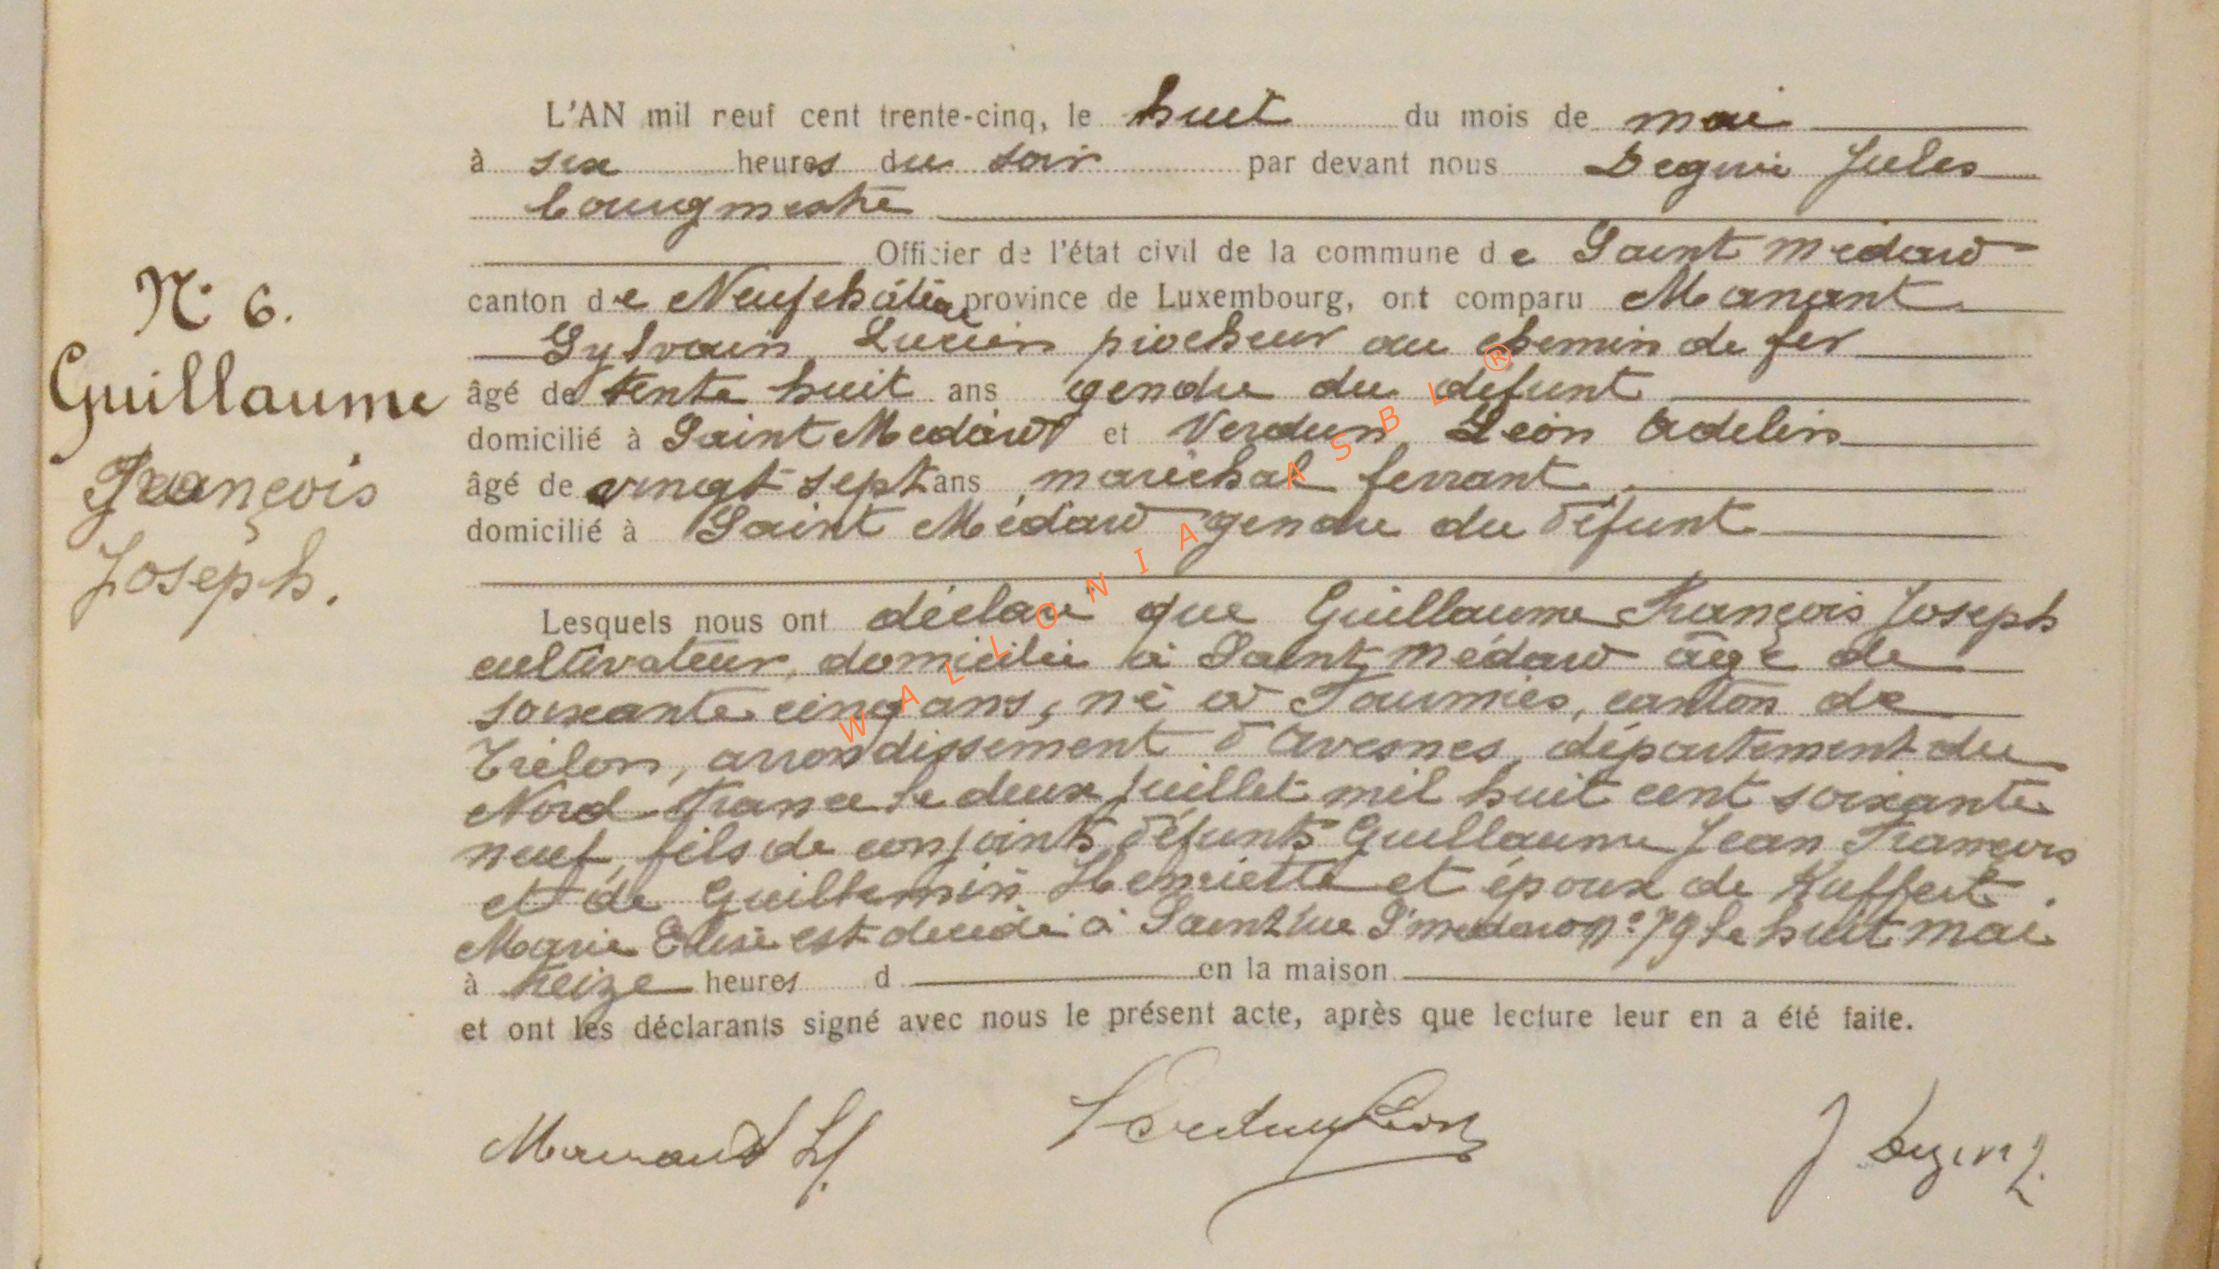 L'AN mil neuf cent trente-cinq, le huit du mois de mai
à six heures du soir par devant nous Jules
bourgmestre
Officier de l'état civil de la commune de Saint Médard
canton de Neufchâteau province de Luxembourg, ont comparu Manant
Sylvain Lucien piocheur au chemin de fer
âgé de trente huit ans gendre du défunt
domicilié à Saint Médard et Verdun Léon Adelin
âgé de vingt sept ans maréchal ferrant
domicilié à Saint Médard gendre du défunt
N° 6.
Guillaume
François
Joseph.
Lesquels nous ont déclaré que Guillaume François Joseph
cultivateur, domicilié à Saint Médard âgé de
soixante cinq ans, né à Fourmies, canton de
Trélon, arrondissement d'Avesnes, département du
Nord France le deux juillet mil huit cent soixante
neuf, fils de conjoints défunts Guillaume Jean François
et de Guillemin Henriette et époux de
Marie Elise est décédé à n° 79 le huit mai
à treize heures d en la maison
et ont les déclarants signé avec nous le présent acte, après que lecture leur en a été faite.
Manant Léon J
WALLONIA ASBL ®